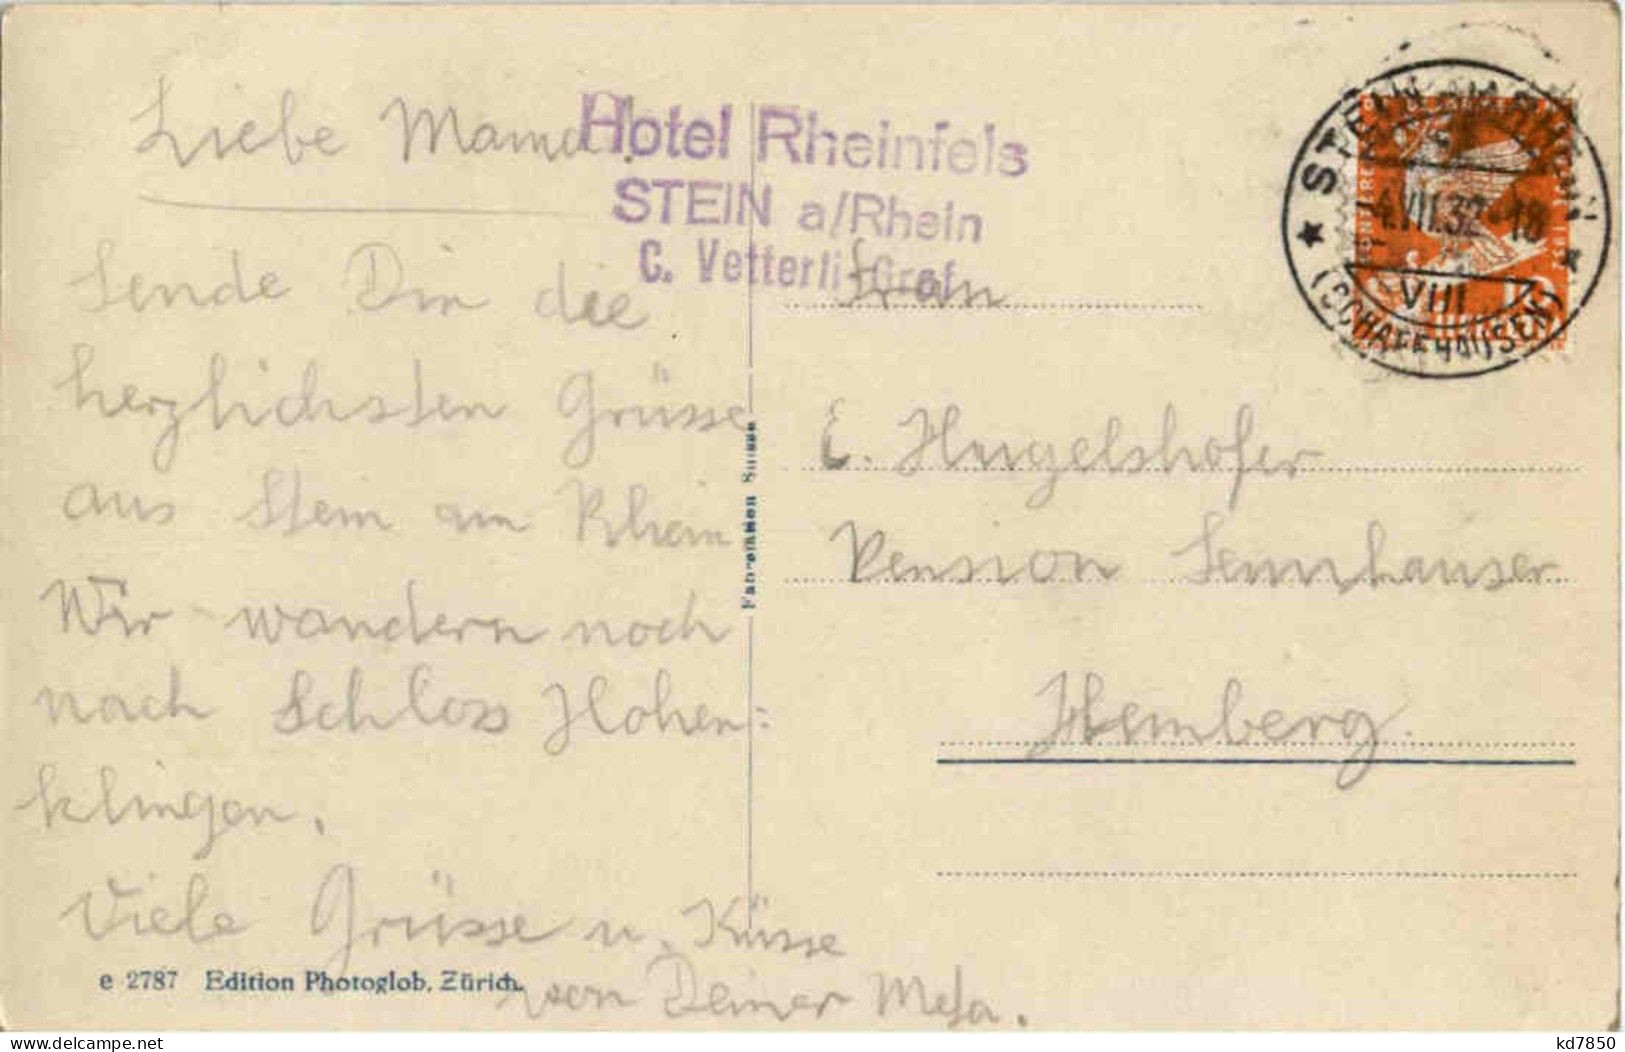 Liebe Mama!
Sende Dir die
herzlichsten Grüsse
aus Stein am Rhein
Wir wandern noch
nach Schloss Hohen=
klingen.
Viele Grüsse u. Küsse
von Deiner
e 2787 Edition Photoglob, Zürich.
Hotel Rheinfels
STEIN a/Rhein
C. Vetterli-Graf
STEIN AM RHEIN
VII.32-18
VIII
(SCHAFFHAUSEN)
Frau
E. Hugelshofer
Pension Sennhauser
Hemberg.
kd7850